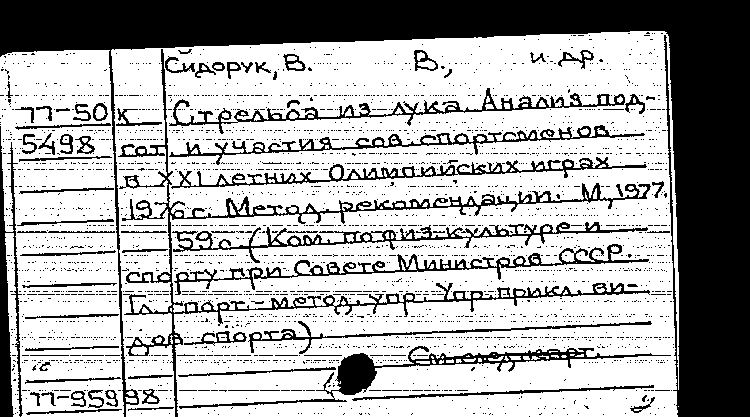 Сидорук, В. В., и др.
77-50 к Стрельба из лука. Анализ под-
5498 гот. и участия сов. спортсменов
в XXI летних Олимпийских играх
1976 г. Метод. рекомендации. М, 1977.
59 с (Ком. по физ. культуре и
спорту при Совете Министров СССР.
Гл. спорт.-метод. упр. Упр. прикл. ви-
дов спорта).
См. след. карт.
77-95998